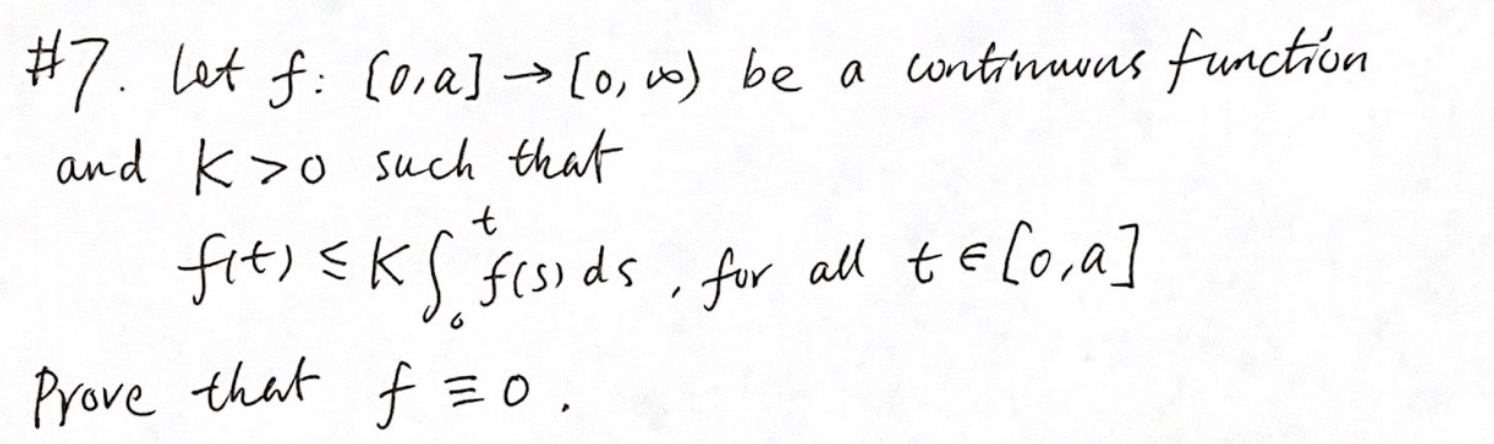 #7. Let f: [0,a] → [0, ∞) be a continuous function
and K > 0 such that
f(t) ≤ K∫₀ᵗ f(s) ds, for all t ∈ [0,a]
Prove that f ≡ 0.